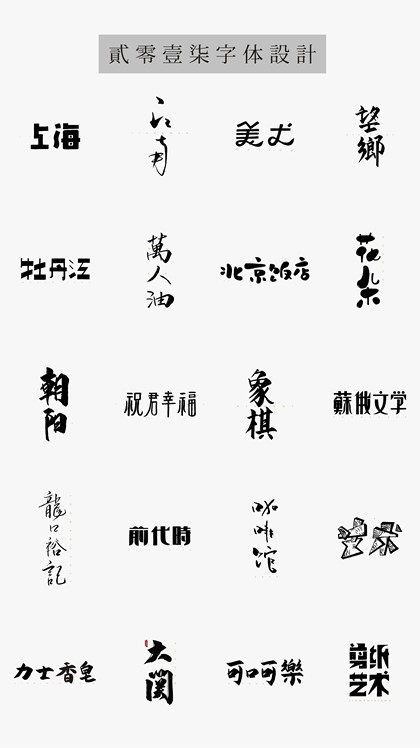 貳零壹柒字体設計
上海
江南
望鄉
牡丹江
萬人油
北京饭店
花朵
朝阳
祝君幸福
象棋
蘇俄文学
龍口裕記
前代時
咖啡馆
艺术
力士香皂
可口可樂
剪纸
艺术